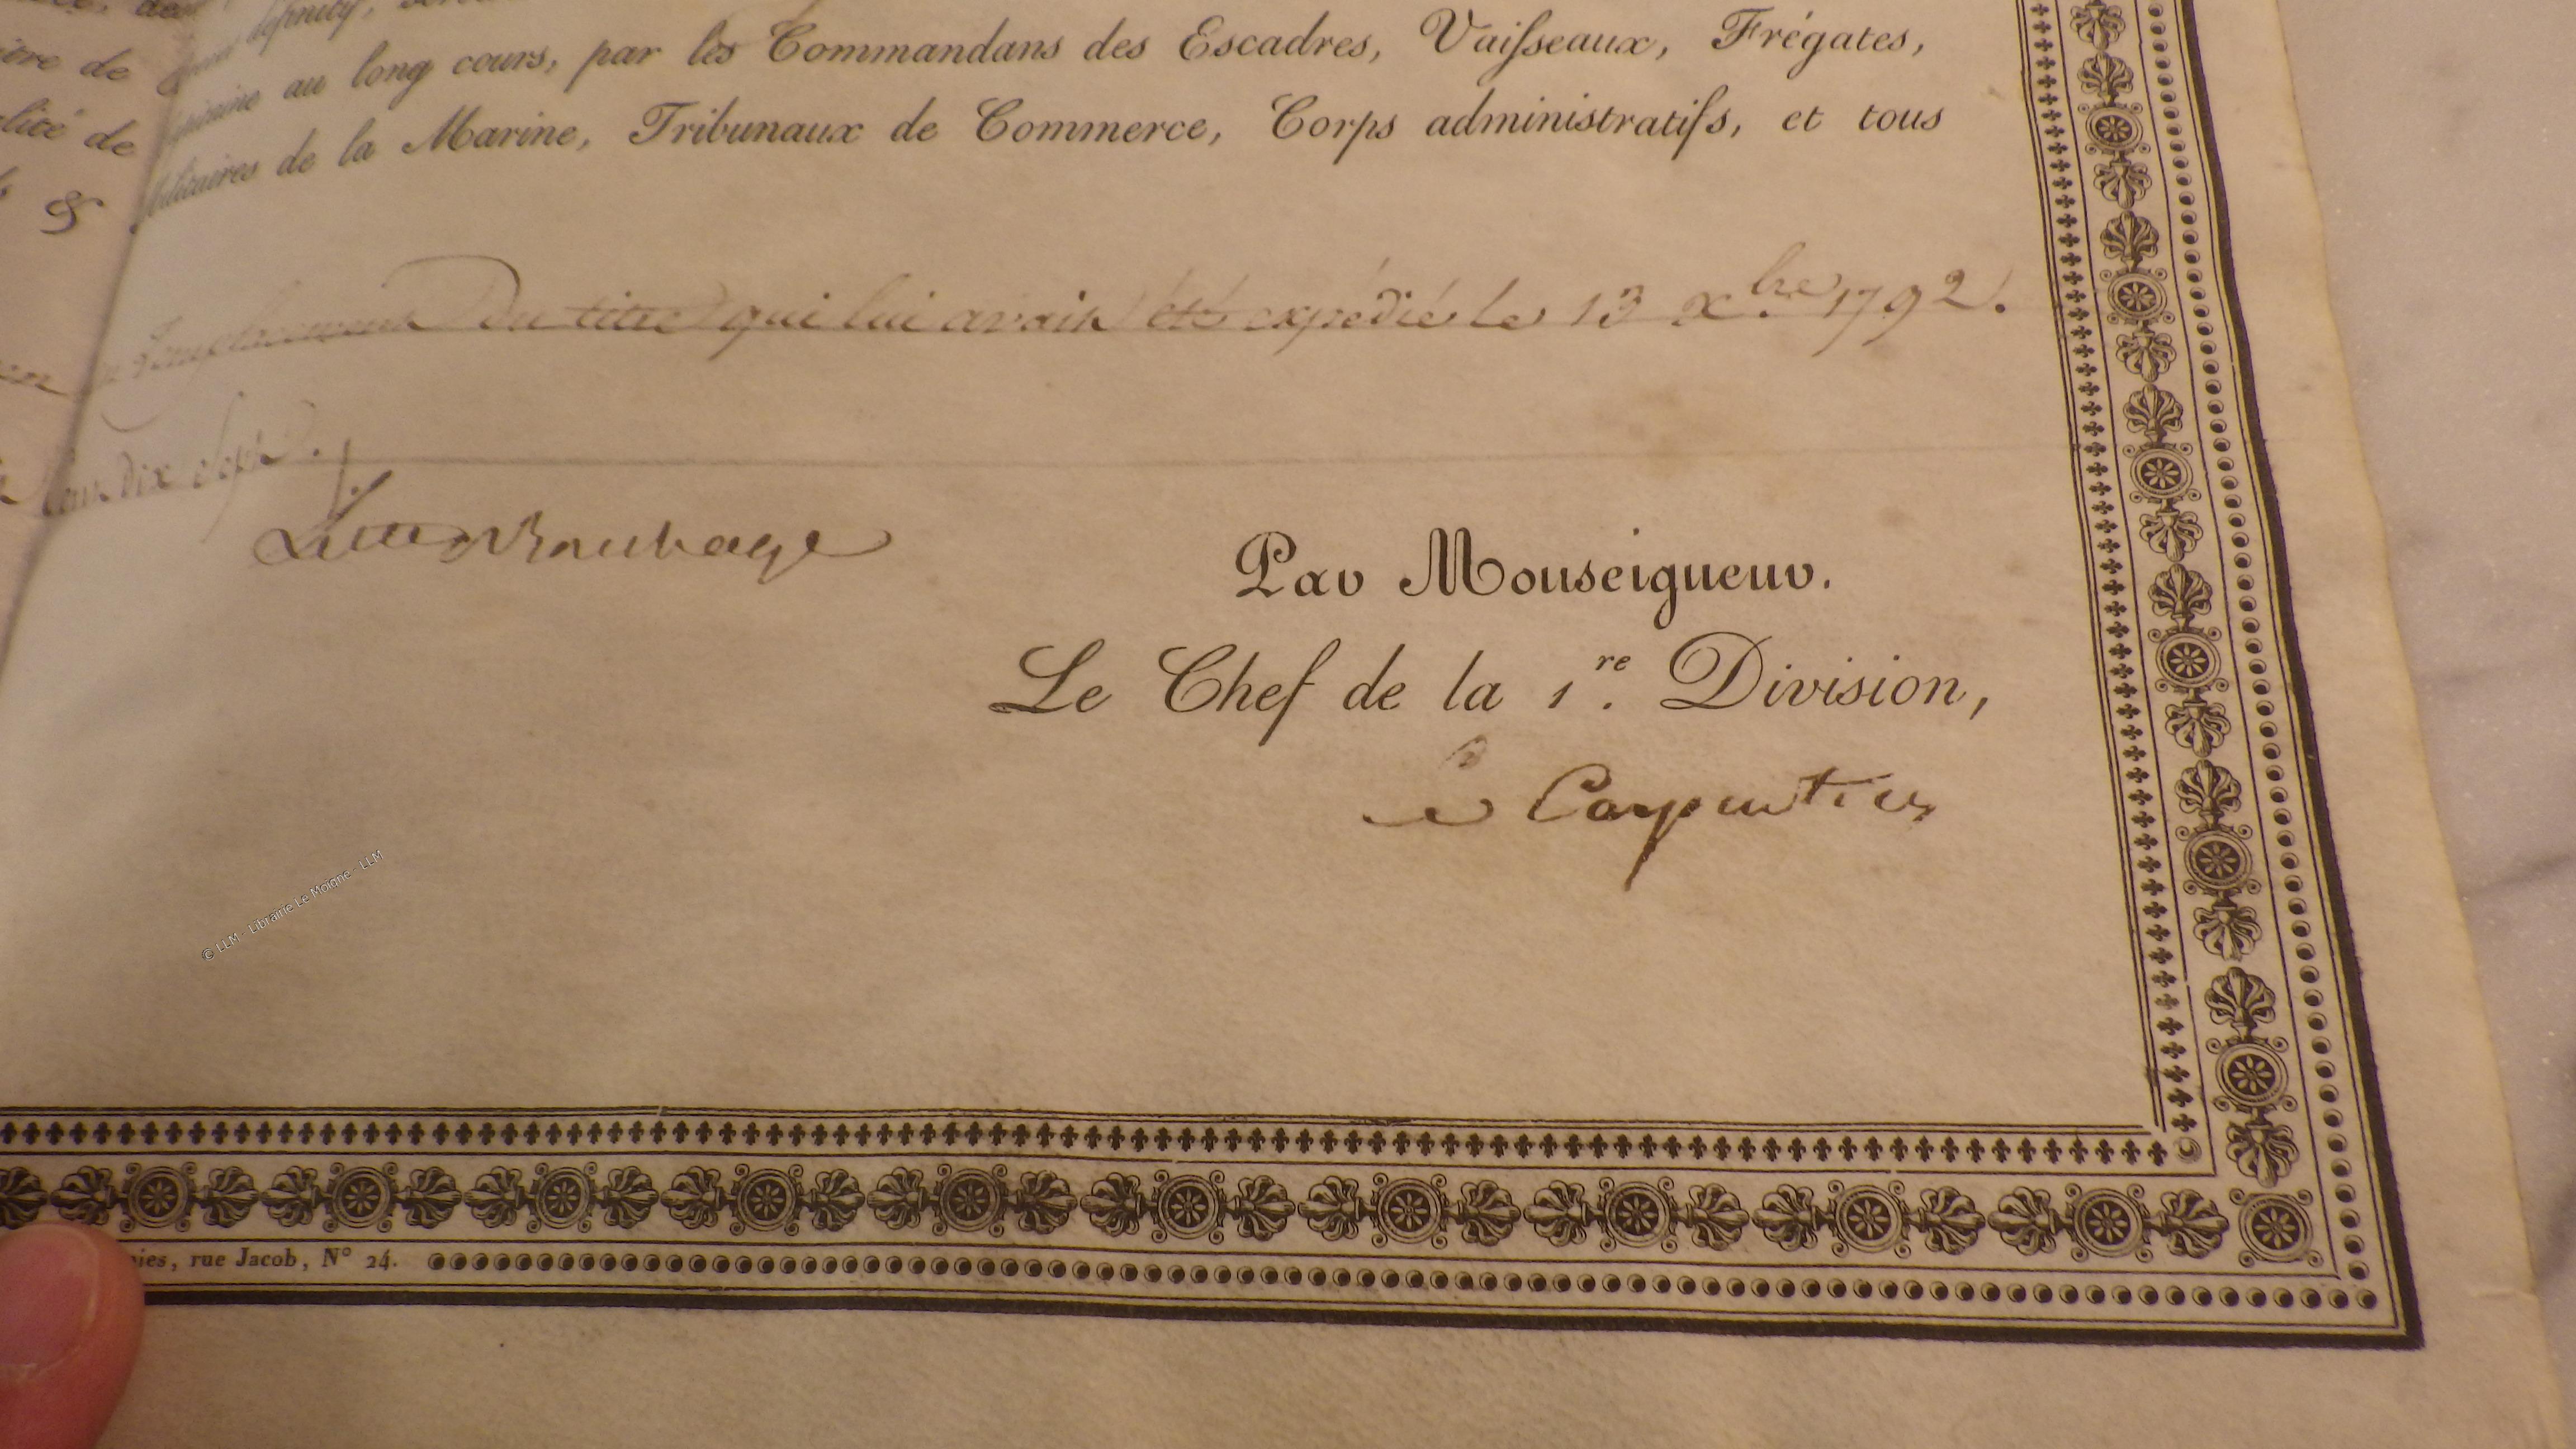 au long cours, par les Commandans des Escadres, Vaisseaux, Frégates,
itre de
lité de
de la Marine, Tribunaux de Commerce, Corps administratifs, et tous
&
Remplacement Du titre qui lui avait été expédié le 13 Xbre 1792.
dix sept.
Par Monseigneur.
Le Chef de la 1.re Division,
Le Carpentier
© LLM - Librairie Le Moigne - LLM
rue Jacob, N° 24.